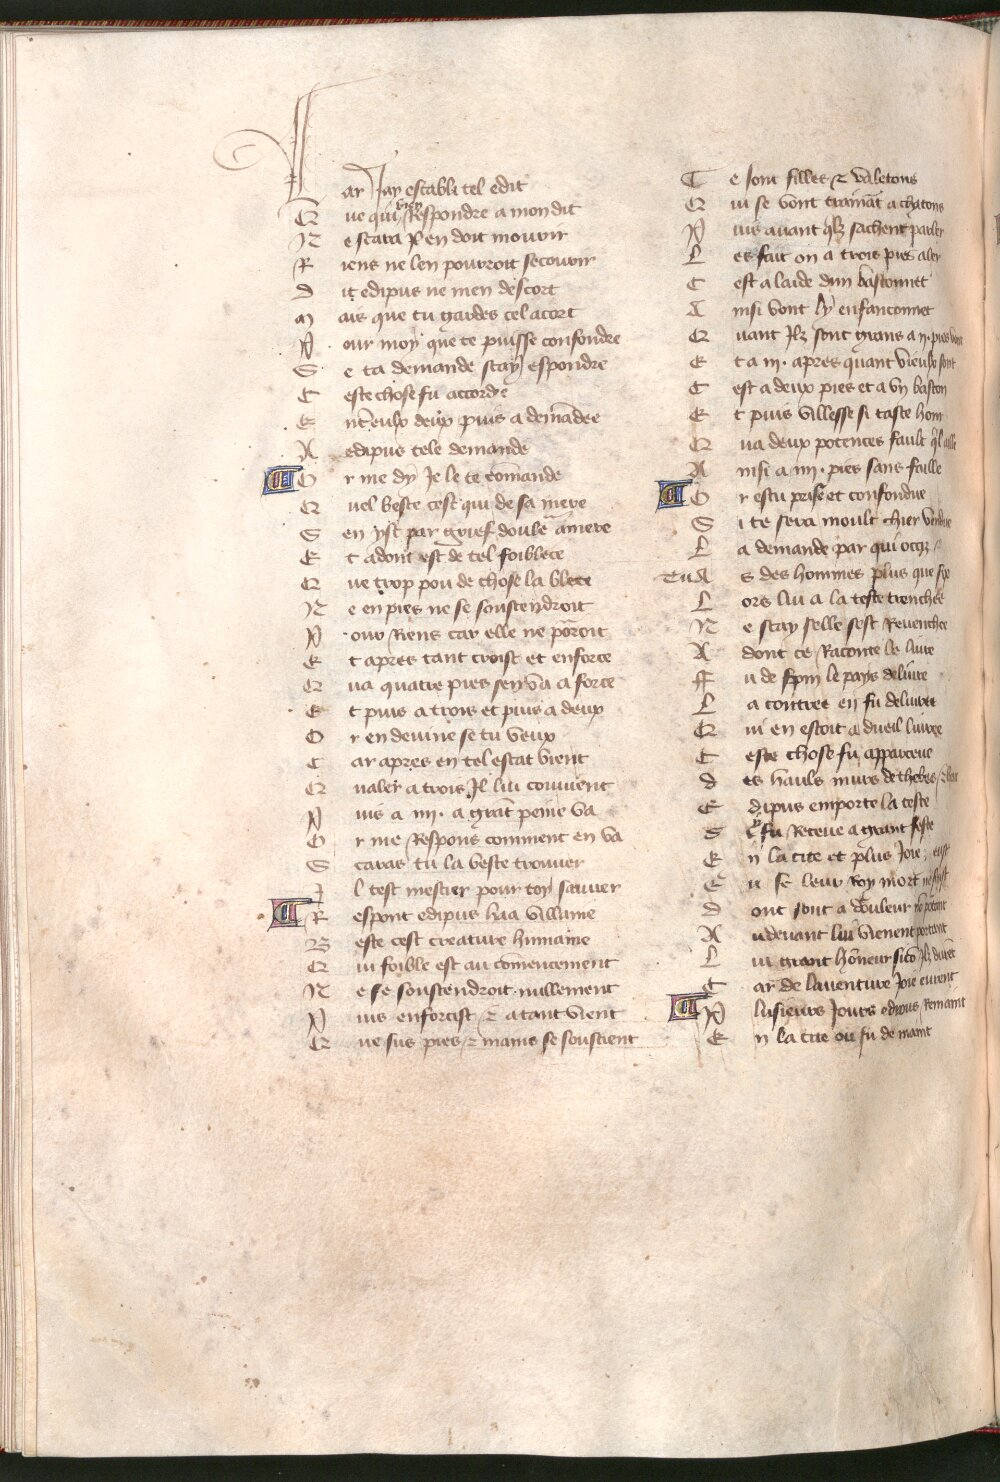 Car Jay establi tel edit
Que qui bien Respondre a mon dit
Ne scara pl en doit mouvir
Riens ne len pouvroit secouvir
Dit edipus ne men descort
Mais que tu gardes cel acort
Pour moy que te puisse confondre
Se ta demande scay espondre
Ceste chose fu accordee
Entreulx deux puis a demandee
A edipus tele demande
Or me dy Je le te comande
Quel beste cest qui de sa mere
Sen yst par grief douleur amere
Et adont est de tel foiblece
Que trop pou de chose la blece
Ne en pies ne se soustendroit
Pour Riens car elle ne porroit
Et apres tant croist et enforce
Qua quatre pies sen va a force
Et puis a trois et puis a deux
Or en devine se tu veux
Car apres en tel estat vient
Qualer a trois Jl lui convient
Puis a iiii. a grant peine va
Or me Respons comment en va
Scaras tu la beste trouver
Jl test mestier pour toy sauver
Respont edipus haa villaine
Beste cest creature humaine
Qui foible est au comencement
Ne se soustendroit nullement
Puis enforcist et atant vient
Que sus pies et mains se soustient
Ce sont filles et valetons
Qui se vont trainant a chatons
Puis avant quilz sachent parler
Les fait on a trois pies aler
Cest a laide dun bastonnet
Ainsi vont ly enfanconnet
Quant Jlz sont grans a ii. pies vont
Et a iii. apres quant vieulx sont
Cest a deux pies et a un baston
Et puis villesse si taste hom
Qua deux potences fault quil aille
Ainsi a iiii. pies sans faille
Or es tu prise et confondue
Si te sera moult chier vendue
La demande par qui occiz
Tu As des hommes plus que six
Lors lui a la teste trenchee
Ne scay selle sest Revenchee
Adont ce Raconte le livre
Fu de spin le pays delivre
La contree en fu delivree
Qui en estoit a dueil livree
Ceste chose fu apparceue
Des haulx murs de thebes
Edipus emporte la teste
Sy fu Receue a grant feste
En la cite et plus Joie eust
Eu se leur Roy mort ne fust
Dont sont a douleur
Au devant lui vienent portant
Lui grant honneur sicom Jlz durent
Car de laventure Joie eurent
Plusieurs Jours edipus Remaint
En la cite ou fu de maint